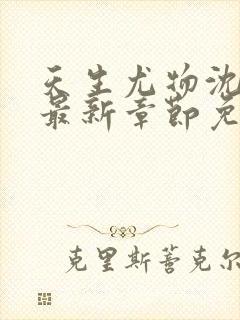 天生尤物沈
最新章节免
克里斯蒂克尔